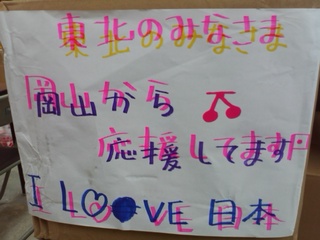 東北のみなさま
岡山から
応援してます!!
I LOVE 日本